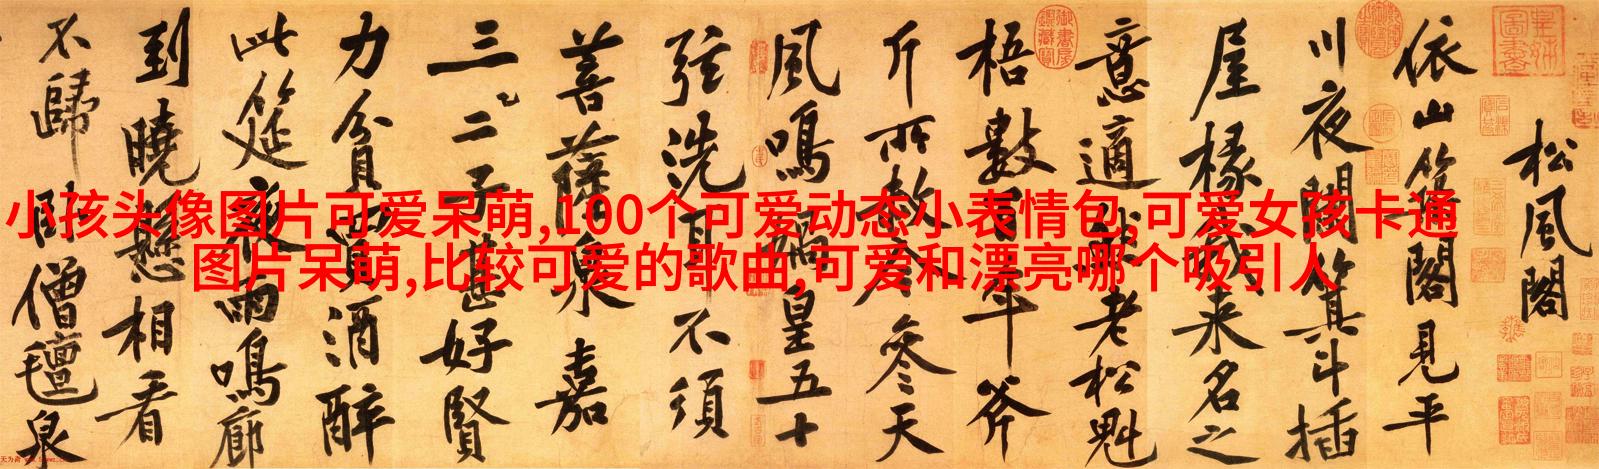 小孩头像图片可爱呆萌,100个可爱动态小表情包,可爱女孩卡通
图片呆萌,比较可爱的歌曲,可爱和漂亮哪个吸引人
松風閣
依山築閣見平
川夜闌箕斗插
屋椽我来名之
意適然老松魁
梧數百年斧
斤所赦今參天
風鳴媧皇五十
弦洗耳不須
菩薩泉嘉
三二子甚好賢
力貧買酒醉
此筵夜雨鳴廊
到曉懸相看
不歸臥僧氊泉
皇姊圖書